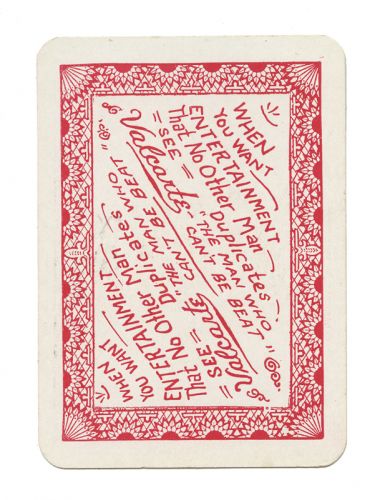 WHEN
YOU WANT
ENTERTAINMENT
That No Other Man
Duplicates
= SEE =
"THE MAN WHO
CAN'T BE BEAT"
WHEN
YOU WANT
ENTERTAINMENT
That No Other Man
Duplicates
= SEE =
"THE MAN WHO
CAN'T BE BEAT"